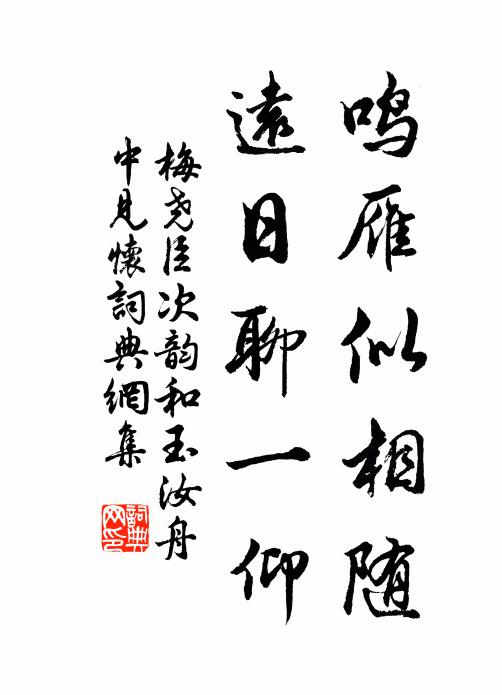 鸣雁似相随
遠日聊一仰
梅尧臣次韵和玉汝舟
中見懷詞典網集
詞典网印